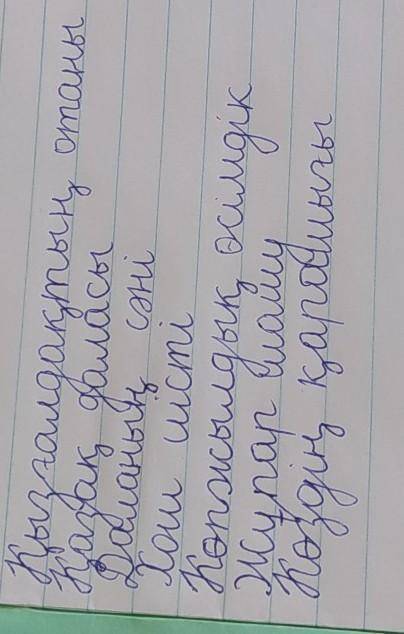 Қызғалдақтың отаны
Қазақ даласы
Даланың сәні
Хош иісті
Көпжылдық өсімдік
Жұпар шашу
Көздің қарашығы